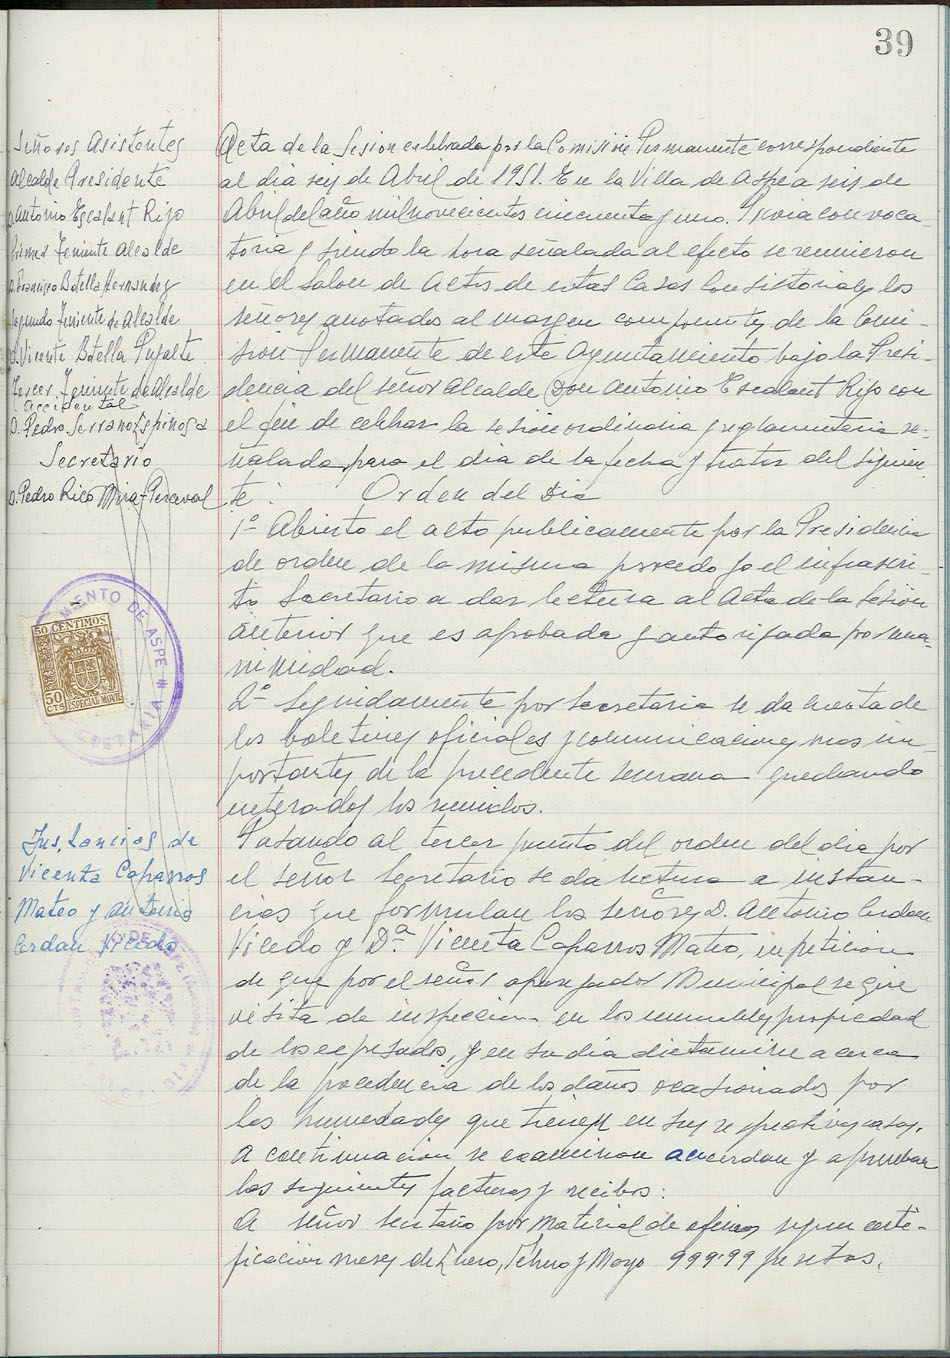 39
Señores Asistentes
Alcalde Presidente
D. Antonio Escalant Rijo
Primer Teniente Alcalde
D. Francisco Botella Hernandez
Segundo Teniente de Alcalde
D. Vicente Botella Pujalte
Tercer Teniente de Alcalde
accidental
D. Pedro Serrano Espinosa
Secretario
D. Pedro Rico Mira-Perceval
AYUNTAMIENTO DE ASPE
SECRETARIA
50 CENTIMOS
50 CTS ESPECIAL MOVIL
Instancias de
Vicenta Caparros
Mateo y Antonio
Cerdan Vicedo
Acta de la Sesion celebrada por la Comisión Permanente correspondiente
al dia seis de Abril de 1951. En la Villa de Aspe a seis de
Abril del año mil novecientos cincuenta y uno. Previa convoca-
toria y siendo la hora señalada al efecto se reunieron
en el Salon de Actos de estas Casas Consistoriales los
señores anotados al margen componentes de la Comi-
sion Permanente de este Ayuntamiento bajo la Presi-
dencia del señor Alcalde Don Antonio Escalant Rijo con
el fin de celebrar la sesion ordinaria y reglamentaria se-
ñalada para el dia de la fecha y tratar del siguien-
te: Orden del Dia
1º Abierto el acto publicamente por la Presidencia
de orden de la misma procedo yo el infrascri-
to Secretario a dar lectura al Acta de la Sesion
anterior que es aprobada y autorizada por una-
nimidad.
2º Seguidamente por Secretaria se da cuenta de
los boletines oficiales y comunicaciones mas im-
portantes de la precedente semana quedando
enterados los reunidos.
Pasando al tercer punto del orden del dia por
el señor Secretario se da lectura a instan-
cias que formulan los señores D. Antonio Cerdan
Vicedo y Dª. Vicenta Caparros Mateo, en peticion
de que por el señor aparejador Municipal se gire
visita de inspeccion en los inmuebles propiedad
de los expresados, y en su dia dictamine acerca
de la procedencia de los daños ocasionados por
las humedades que tienen en sus respectivas casas.
A continuacion se examinan acuerdan y aprueban
las siguientes facturas y recibos:
A señor Secretario por material de oficina segun certi-
ficacion meses de Enero, Febrero y Mayo 999'99 pesetas.